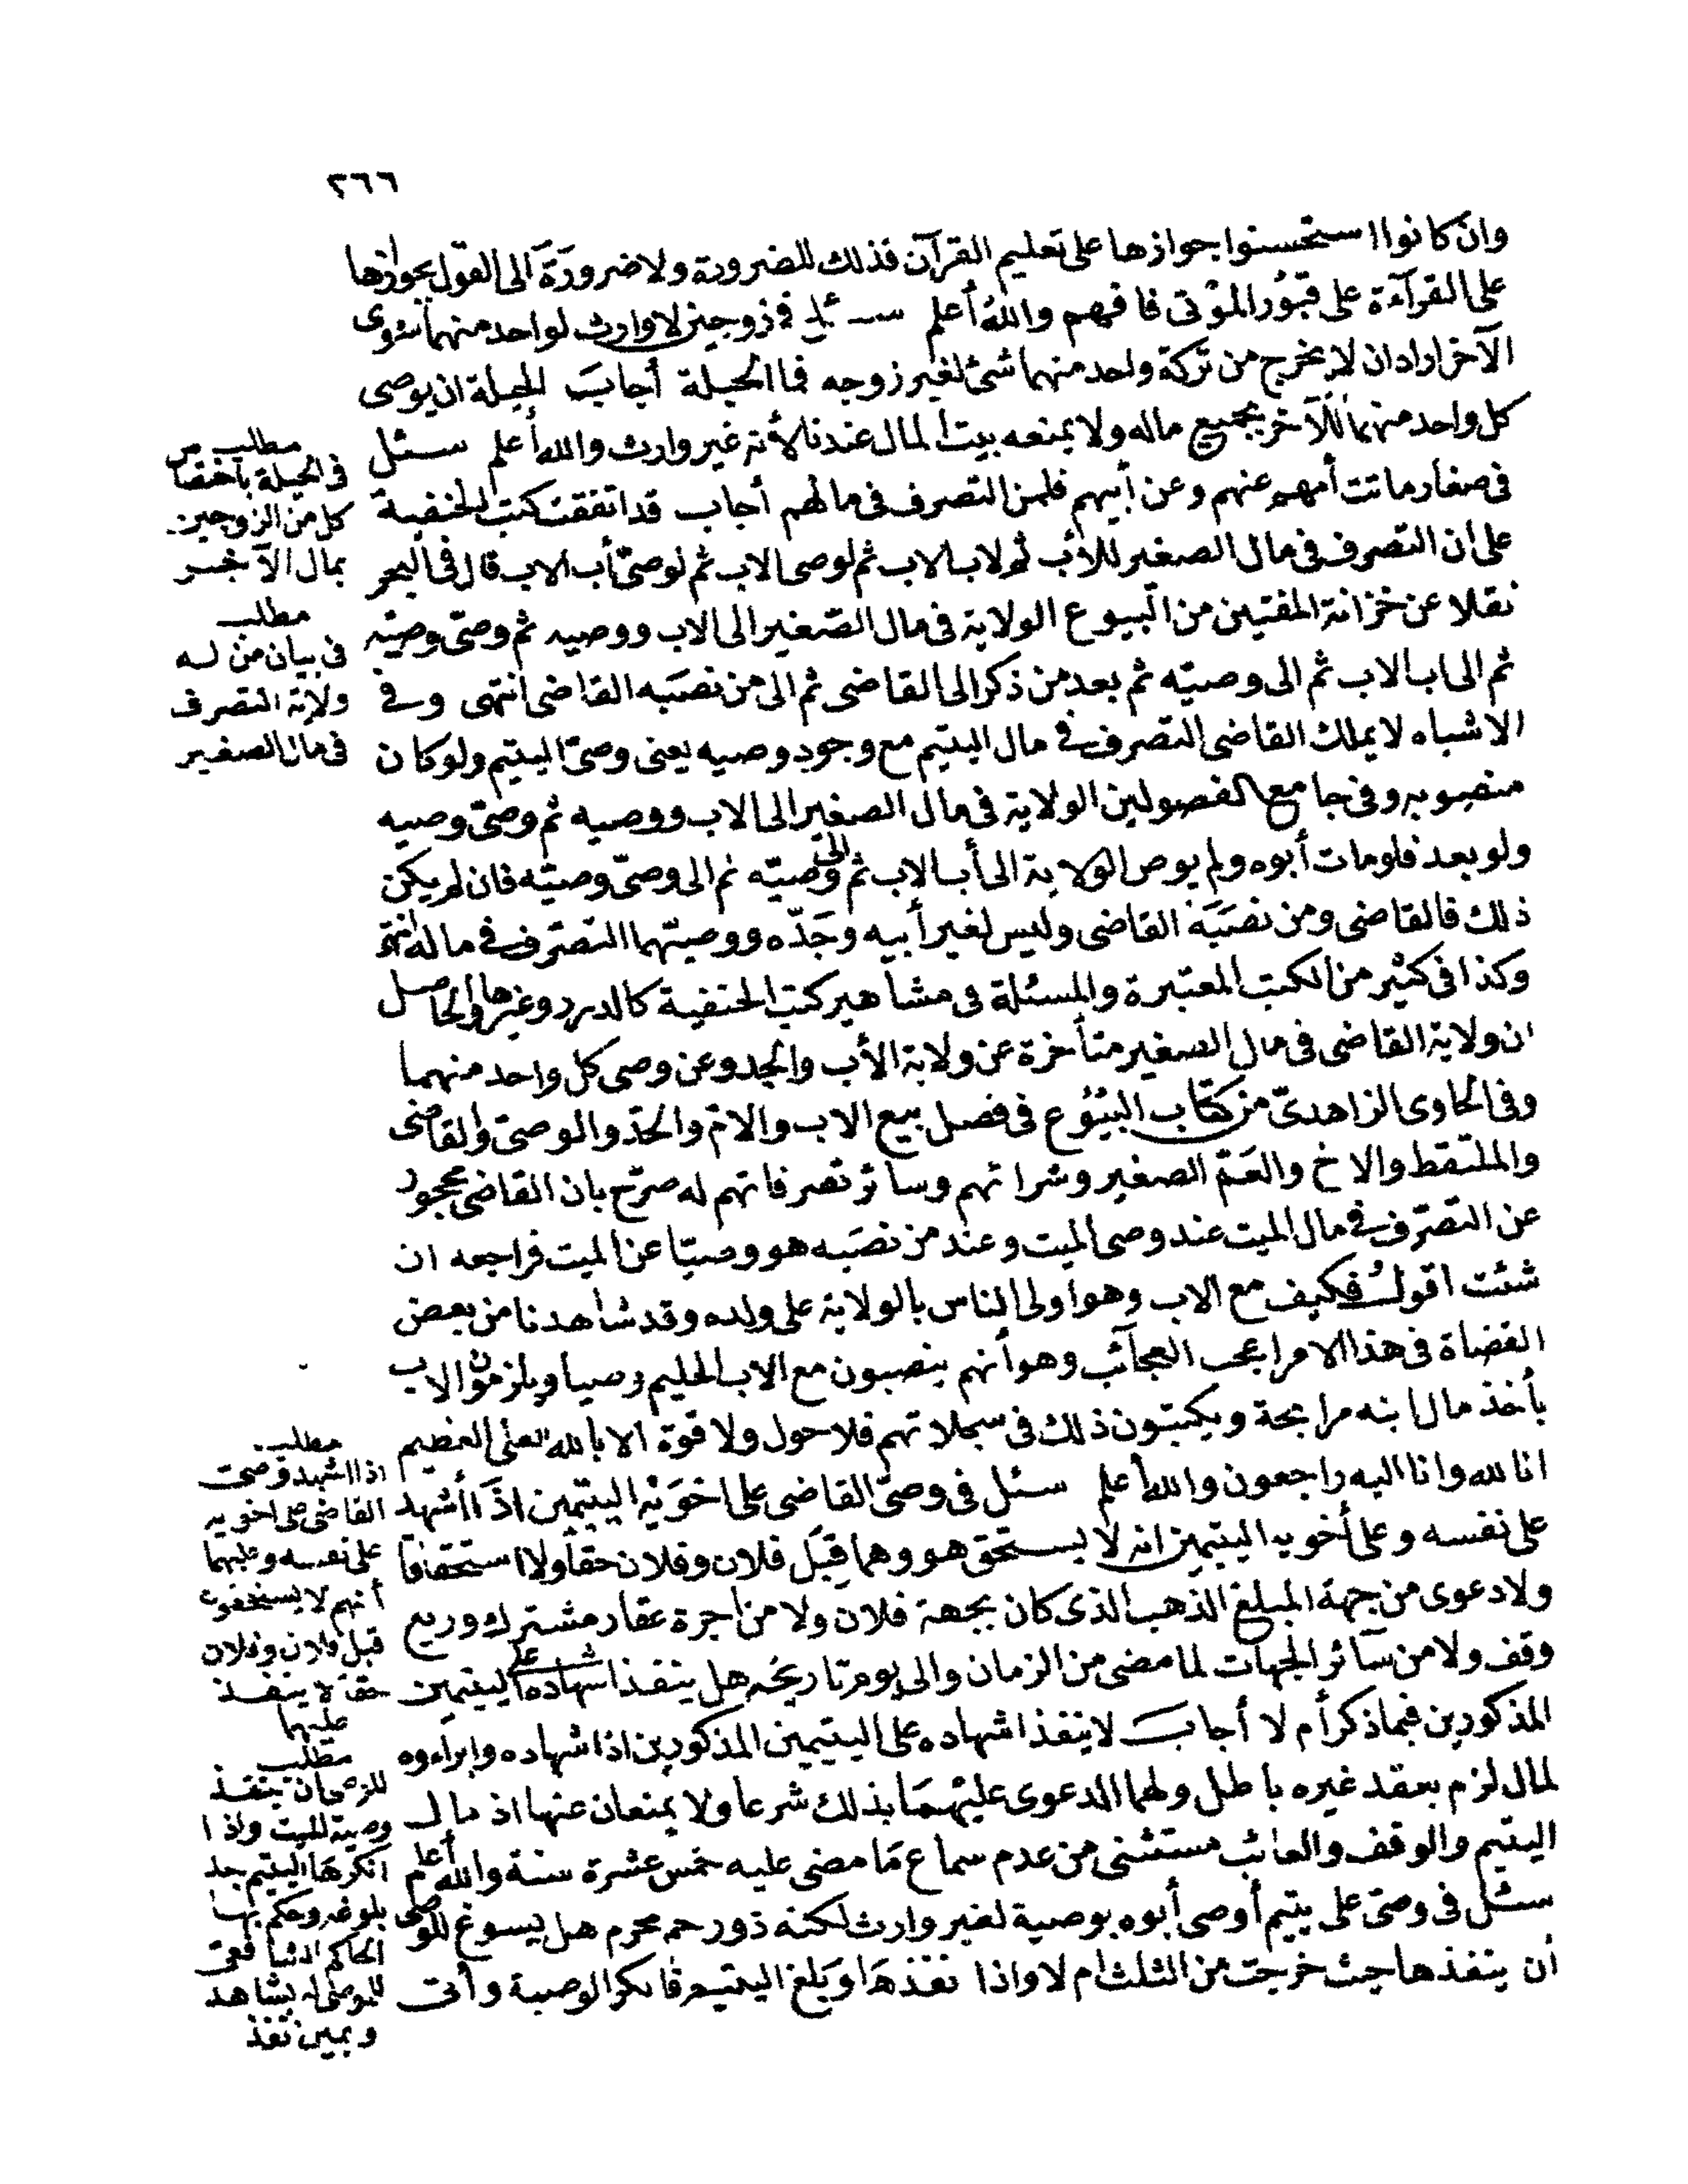 ٢٦٦
وان كانوا استحسنوا جوازها على تعليم القرآن فذلك للضرورة ولا ضرورة الى القول بجوازها
على القرآءة على قبور الموتى فافهم والله أعلم سئل في زوجين لا وارث لواحد منهما سوى
الآخر اراد ان لا يخرج من تركة واحد منهما شئ لغير زوجه فما الحيلة أجاب الحيلة ان يوصى
كل واحد منهما للآخر بجميع ماله ولا يمنعه بيت المال عندنا لأنه غير وارث والله أعلم سئل
في صغار ماتت أمهم عنهم وعن أبيهم فلمن التصرف في مالهم أجاب قد اتفقت كتب الحنفية
على ان التصرف في مال الصغير للأب ثم لاب الاب ثم لوصى الاب ثم لوصىّ أب الاب قال في البحر
نقلا عن خزانة المفتين من البيوع الولاية في مال الصّغير الى الاب ووصيه ثم وصىّ وصيّه
ثم الى اب الاب ثم الى وصيّه ثم بعد من ذكر الى القاضى ثم الى من نصبه القاضى انتهى وفي
الاشباه لا يملك القاضى التصرف في مال اليتيم مع وجود وصيه يعنى وصىّ اليتيم ولو كان
منصوبه وفي جامع الفصولين الولاية في مال الصغير الى الاب ووصيه ثم وصىّ وصيه
ولو بعد فلو مات أبوه ولم يوص الولاية الى أب الاب ثم الى وصيّه ثم الى وصىّ وصيّه فان لم يكن
ذلك فالقاضى ومن نصبَه القاضى وليس لغير أبيه وجَدّه ووصيّهما التصرّف في ماله انتهى
وكذا في كثير من الكتب المعتبرة والمسئلة في مشاهير كتب الحنفية كالدرر وغيرها والحاصل
ان ولاية القاضى في مال الصغير متأخرة عن ولاية الأب والجد وعن وصى كل واحد منهما
وفي الحاوى الزاهدىّ من كتاب البيُوع في فصل بيع الاب والامّ والجدّ والوصىّ والقاضى
والملتقط والاخ والعَمّ الصغير وشرائهم وسائر تصرفاتهم له صرّح بان القاضى محجور
عن التصرّف في مال الميت عند وصى الميت وعند من نصَبه هو وصيّا عن الميت فراجعه ان
شئت اقول فكيف مع الاب وهو اولى الناس بالولاية على ولده وقد شاهدنا من بعض
القضاة في هذا الامر اعجب العجآئب وهو أنهم ينصبون مع الاب الحليم وصيا ويلزمون الاب
بأخذ مال ابنه مرابحة ويكتبون ذلك في سجلاتهم فلا حول ولا قوة الا بالله العلى العظيم
انا لله وانا اليه راجعون والله أعلم سئل في وصىّ القاضى على اخوَيْه اليتيمين اذَا أشهد
على نفسه وعلى أخويه اليتيمين انه لا يستحق هو وهما قِبَل فلان وفلان حقا ولا استحقاقا
ولا دعوى من جهة المبلغ الذهب الذى كان بجهة فلان ولا من اجرة عقار مشترك وريع
وقف ولا من سآئر الجهات لما مضى من الزمان والى يوم تاريخه هل ينفذ اشهاده على اليتيمين
المذكورين فيما ذكر أم لا أجاب لا ينفذ اشهاده على اليتيمين المذكورين اذ اشهاده وابراءوه
لمال لزم بعقد غيره باطل ولهما الدعوى عليْهمَا بذلك شرعا ولا يمنعان عنها اذ مال
اليتيم والوقف والغائب مستثنى من عدم سماع مَا مضى عليه خمس عشرة سنة والله أعلم
سئل في وصىّ على يتيم أوصى أبوه بوصية لغير وارث لكنه ذو رحم محرم هل يسوغ للوصى
أن ينفذها حيث خرجت من الثلث ام لا واذا نفذهَا وَبَلغ اليتيم فانكر الوصية وأتى
مطلب
في الحيلة باختصاص
كل من الزوجين
بمال الآخر
مطلب
في بيان من له
ولاية التصرف
في مال الصغير
مطلب
اذا اشهد وصى
القاضى على اخويه
على نفسه وعليهما
أنهم لا يستحقون
قبل فلان وفلان
حقا لا ينفذ
عليهما
مطلب
للوصى ان ينفذ
وصية الميت واذا
انكرهَا اليتيم بعد
بلوغه وحكم بها
الحاكم الشافعى
للموصى له بشاهد
ويمين نفذ